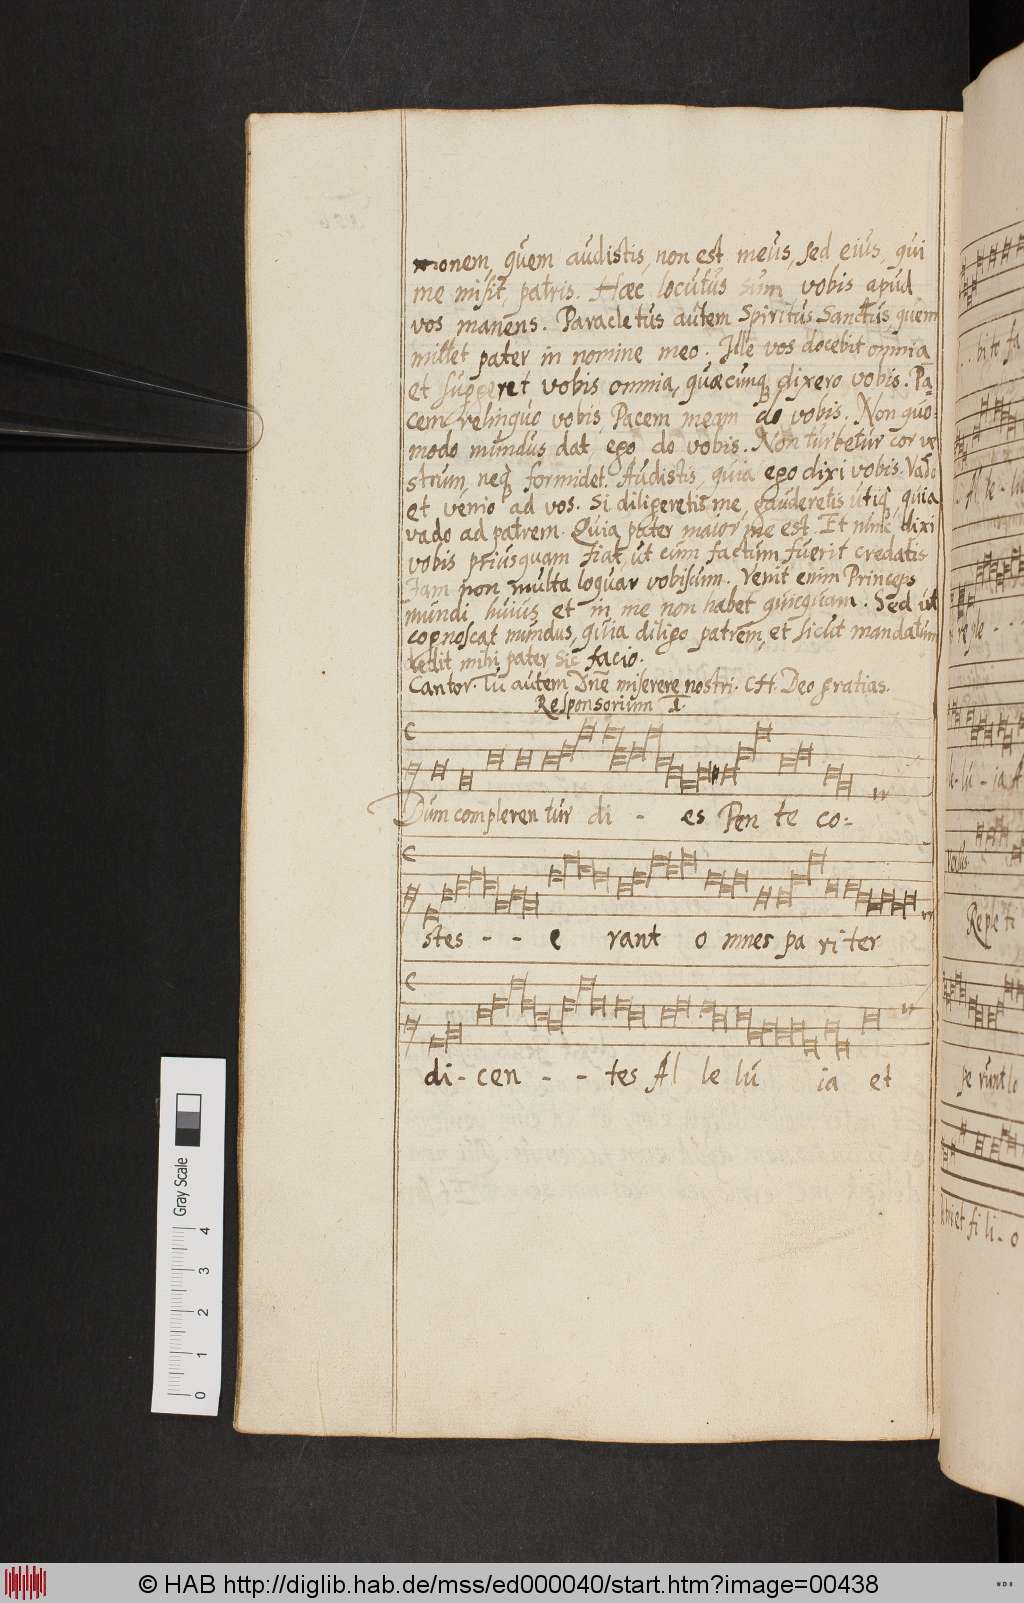 monem, quem audistis, non est meus, sed eius, qui
me misit, patris. Hæc locutus sum vobis apud
vos manens. Paracletus autem Spiritus Sanctus, quem
mittet pater in nomine meo. Ille vos docebit omnia
et suggeret vobis omnia, quæcunq dixero vobis. Pa
cem relinquo vobis Pacem meam do vobis. Non quo:
modo mundus dat, ego do vobis. Non turbetur cor ve
strum, neq formidet. Audistis, quia ego dixi vobis. Vado
et venio ad vos. Si diligeretis me, gauderetis utiq, quia
vado ad patrem. Quia pater maior me est. Et nunc dixi
vobis priusquam fiat, ut cum factum fuerit credatis
Iam non multa loquar vobiscum. Venit enim Princeps
mundi huius et in me non habet quicquam. Sed ut
cognoscat mundus, quia diligo patrem, et sicut mandatum
dedit mihi pater sic facio.
Cantor. Tu autem Dne miserere nostri. CH. Deo gratias.
Responsorium I.
Dum compleren tur di - es Pen te co:-
stes - - e rant o mnes pa ri ter
di - cen - - tes Al le lu ia et
bit fa
Al le - lu
reple - -
le - lu - ia A
Repleti
se runt lo
et fi li - o
Gray Scale
4
3
2
1
0
© HAB http://diglib.hab.de/mss/ed000040/start.htm?image=00438